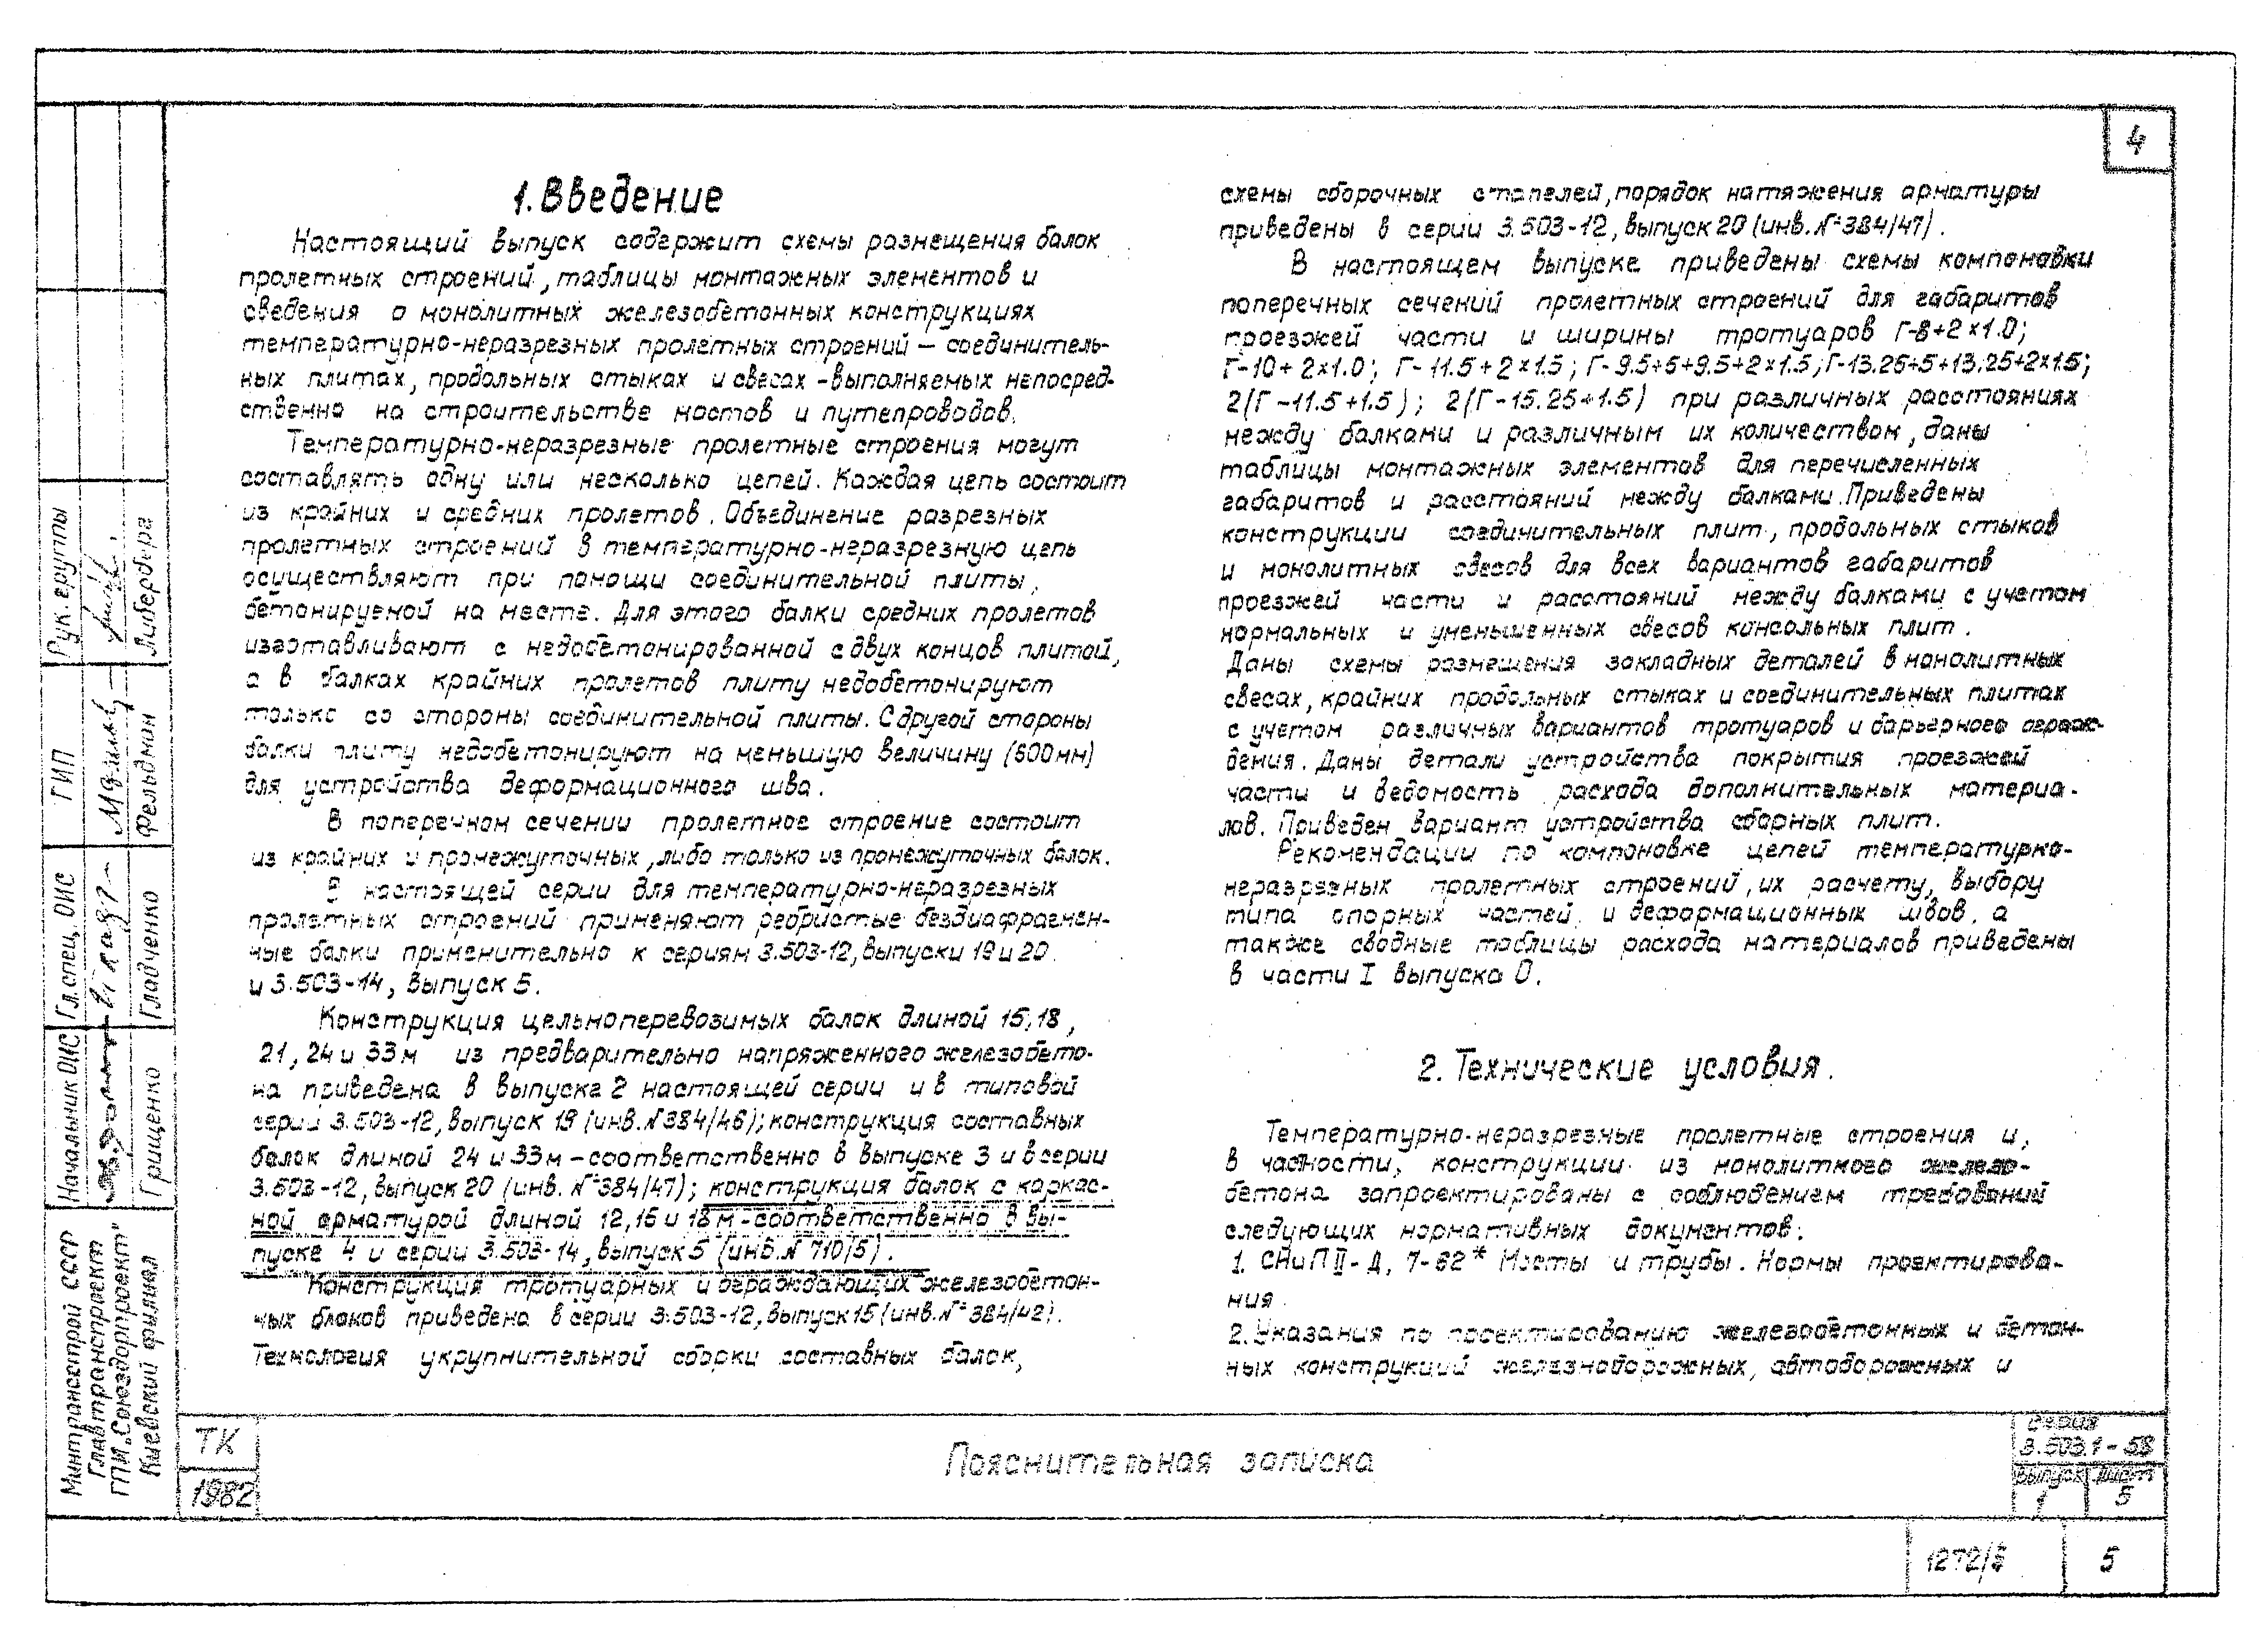 4
1. Введение
Настоящий выпуск содержит схемы размещения балок
пролетных строений, таблицы монтажных элементов и
сведения о монолитных железобетонных конструкциях
температурно-неразрезных пролетных строений — соединитель-
ных плитах, продольных стыках и свесах - выполняемых непосред-
ственно на строительстве мостов и путепроводов.
Температурно-неразрезные пролетные строения могут
составлять одну или несколько цепей. Каждая цепь состоит
из крайних и средних пролетов. Объединение разрезных
пролетных строений в температурно-неразрезную цепь
осуществляют при помощи соединительной плиты,
бетонируемой на месте. Для этого балки средних пролетов
изготавливают с недобетонированной с двух концов плитой,
а в балках крайних пролетов плиту недобетонируют
только со стороны соединительной плиты. С другой стороны
балки плиту недобетонируют на меньшую величину (600мм)
для устройства деформационного шва.
В поперечном сечении пролетное строение состоит
из крайних и промежуточных, либо только из промежуточных балок.
В настоящей серии для температурно-неразрезных
пролетных строений применяют ребристые бездиафрагмен-
ные балки применительно к сериям 3.503-12, выпуски 19 и 20
и 3.503-14, выпуск 5.
Конструкция цельноперевозимых балок длиной 15, 18,
21, 24 и 33 м из предварительно напряженного железобето-
на приведена в выпуске 2 настоящей серии и в типовой
серии 3.503-12, выпуск 19 (инв. N 384/46); конструкция составных
балок длиной 24 и 33м - соответственно в выпуске 3 и в серии
3.503-12, выпуск 20 (инв. №384/47); конструкция балок с каркас-
ной арматурой длиной 12, 15 и 18м - соответственно в вы-
пуске 4 и серии 3.503-14, выпуск 5 (инв. N 710/5).
Конструкция тротуарных и ограждающих железобетон-
ных блоков приведена в серии 3.503-12, выпуск 15 (инв. № 384/42).
Технология укрупнительной сборки составных балок,
схемы сборочных стапелей, порядок натяжения арматуры
приведены в серии 3.503-12, выпуск 20 (инв. №384/47).
В настоящем выпуске приведены схемы компоновки
поперечных сечений пролетных строений для габаритов
проезжей части и ширины тротуаров Г-8+2×1.0;
Г-10+2×1.0; Г-11.5+2×1.5; Г-9.5+5+9.5+2×1.5; Г-13.25+5+13.25+2×1.5;
2(Г-11.5+1.5); 2(Г-15.25+1.5) при различных расстояниях
между балками и различным их количеством, даны
таблицы монтажных элементов для перечисленных
габаритов и расстояний между балками. Приведены
конструкции соединительных плит, продольных стыков
и монолитных свесов для всех вариантов габаритов
проезжей части и расстояний между балками с учетом
нормальных и уменьшенных свесов консольных плит.
Даны схемы размещения закладных деталей в монолитных
свесах, крайних продольных стыках и соединительных плитах
с учетом различных вариантов тротуаров и барьерного ограж-
дения. Даны детали устройства покрытия проезжей
части и ведомость расхода дополнительных материа-
лов. Приведен вариант устройства сборных плит.
Рекомендации по компоновке цепей температурно-
неразрезных пролетных строений, их расчету, выбору
типа опорных частей и деформационных швов, а
также сводные таблицы расхода материалов приведены
в части I выпуска 0.
2. Технические условия.
Температурно-неразрезные пролетные строения и,
в частности, конструкции из монолитного железо-
бетона запроектированы с соблюдением требований
следующих нормативных документов:
1. СНиП II-Д. 7-62* Мосты и трубы. Нормы проектирова-
ния.
2. Указания по проектированию железобетонных и бетон-
ных конструкций железнодорожных, автодорожных и
Рук. группы
Либерберг
ГИП
Фельдман
Гл. спец. ОИС
Гладченко
Начальник ОИС
Грищенко
Минтрансстрой СССР
Главтранспроект
ГПИ „Союздорпроект"
Киевский филиал
ТК
1982
Пояснительная записка
Серия
3.503.1-58
Выпуск Лист
1 5
1272/
5